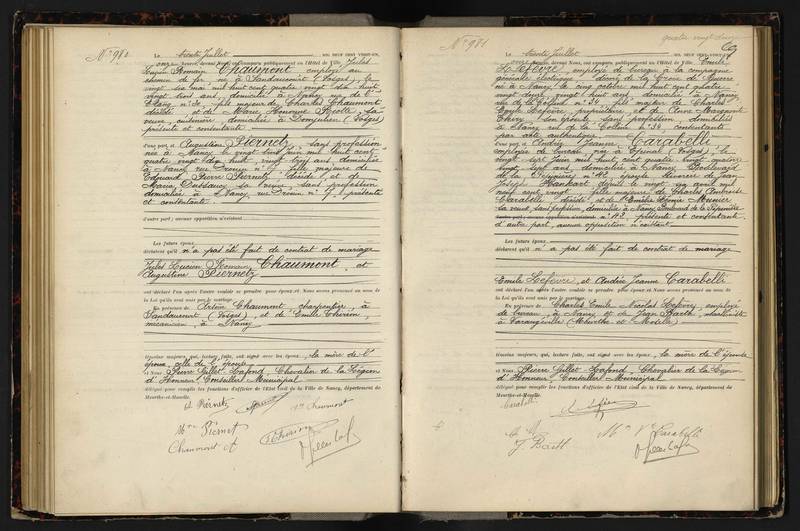 N° 980
Le trente Juillet mil neuf cent vingt-un,
onze heures, devant Nous, ont comparu publiquement en l'Hôtel de Ville Jules
Lucien Romain Chaumont, employé au
chemin de fer, né à Sandaucourt (Vosges), le
vingt six mai mil huit cent quatre vingt dix huit
vingt trois ans, domicilié à Nancy rue de l'
Etang n° 30, fils majeur de Charles Chaumont
décédé, et de Marie Honorine sa
veuve, domiciliée à Domjulien (Vosges)
présente et consentante.
d'une part, et Augustine Piernetz, sans profession
née à Nancy le vingt juin mil huit cent
quatre vingt dix huit, vingt trois ans domiciliée
à Nancy rue n° 7, fille majeure de
Edouard Pierre Piernetz, décédé, et de
Maria sa veuve, sans profession
domiciliée à Nancy rue n° 7, présente
et consentante.
d'autre part; aucune opposition n'existant
Les futurs époux
déclarent qu'il n'a pas été fait de contrat de mariage
Jules Lucien Romain Chaumont, et
Augustine Piernetz
ont déclaré l'un après l'autre vouloir se prendre pour époux et Nous avons prononcé au nom de
la Loi qu'ils sont unis par le mariage.
En présence de Chaumont charpentier, à
Sandaucourt (Vosges), et de Emile Thirion,
mécanicien, à Nancy
témoins majeurs, qui, lecture faite, ont signé avec les époux, la mère de l'
époux, celle de l'épouse
et Nous Pierre Gillet Lafond, Chevalier de la Légion
d'Honneur, Conseiller Municipal
délégué pour remplir les fonctions d'Officier de l'Etat civil de la Ville de Nancy, département de
Meurthe-et-Moselle.
A Piernetz
Vve Chaumont
Mme Piernet
Chaumont A
Thirion
N° 981
quatre vingt dix
Le trente Juillet mil neuf cent vingt-un,
onze heures, devant Nous, ont comparu publiquement en l'Hôtel de Ville Emile
Lefèvre, employé de bureau à la compagnie
générale électrique, décoré de la Croix de Guerre
né à Nancy le cinq octobre mil huit cent quatre
vingt douze, vingt huit ans, domicilié à Nancy
rue de la Colline n° 34, fils majeur de Charles
Emile Lefèvre, propriétaire, et de
Thiry, son épouse sans profession, domiciliés
à Nancy rue de la Colline n° 34 consentants
par acte authentique
d'une part, et Andrée Jeanne Carabelli
employée de bureau, née à (Vosges), le
vingt sept juin mil huit cent quatre vingt quatorze
vingt sept ans, domiciliée à Nancy Boulevard
de la Pépinière n° 42, épouse divorcée de Jean
Joseph depuis le vingt six avril mil
neuf cent vingt, fille majeure de Charles Ambroise
Carabelli décédé, et de Emélie Mimier
sa veuve sans profession, domiciliée à Nancy, Boulevard de la Pépinière
d'autre part; aucune opposition n'existant n° 42 présente et consentante
d'autre part, aucune opposition n'existant.
Les futurs époux
déclarent qu'il n'a pas été fait de contrat de mariage
Emile Lefèvre, et Andrée Jeanne Carabelli
ont déclaré l'un après l'autre vouloir se prendre pour époux et Nous avons prononcé au nom de
la Loi qu'ils sont unis par le mariage.
En présence de Charles Emile Nicolas Lefèvre, employé
de bureau, à Nancy et de Jean Barth,
à Varangéville (Meurthe et Moselle)
témoins majeurs, qui, lecture faite, ont signé avec les époux, la mère de l'épouse
et Nous Pierre Gillet Lafond, Chevalier de la Légion
d'Honneur, Conseiller Municipal
délégué pour remplir les fonctions d'Officier de l'Etat civil de la Ville de Nancy, département de
Meurthe-et-Moselle.
Carabelli
J Barth
Mme Vve Carabelli